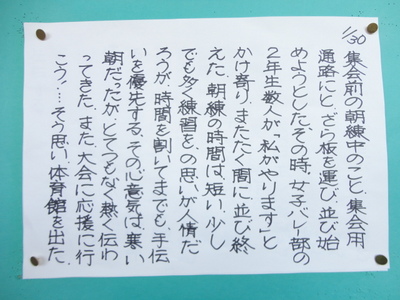 1/30
集会前の朝練中のこと、集会用
通路にと、ざら板を運び、並び始
めようとした、その時、女子バレー部の
2年生数人が「私がやります」と
かけ寄り、またたく間に並び終
えた。朝練の時間は、短い。少し
でも多く練習を。の思いが人情だ
ろうが、時間を割いてまでも、手伝
いを優先する、その心意気は、寒い
朝だったが、とてつもなく熱く伝わ
ってきた。また、大会に応援に行
こう!…そう思い、体育館を出た。